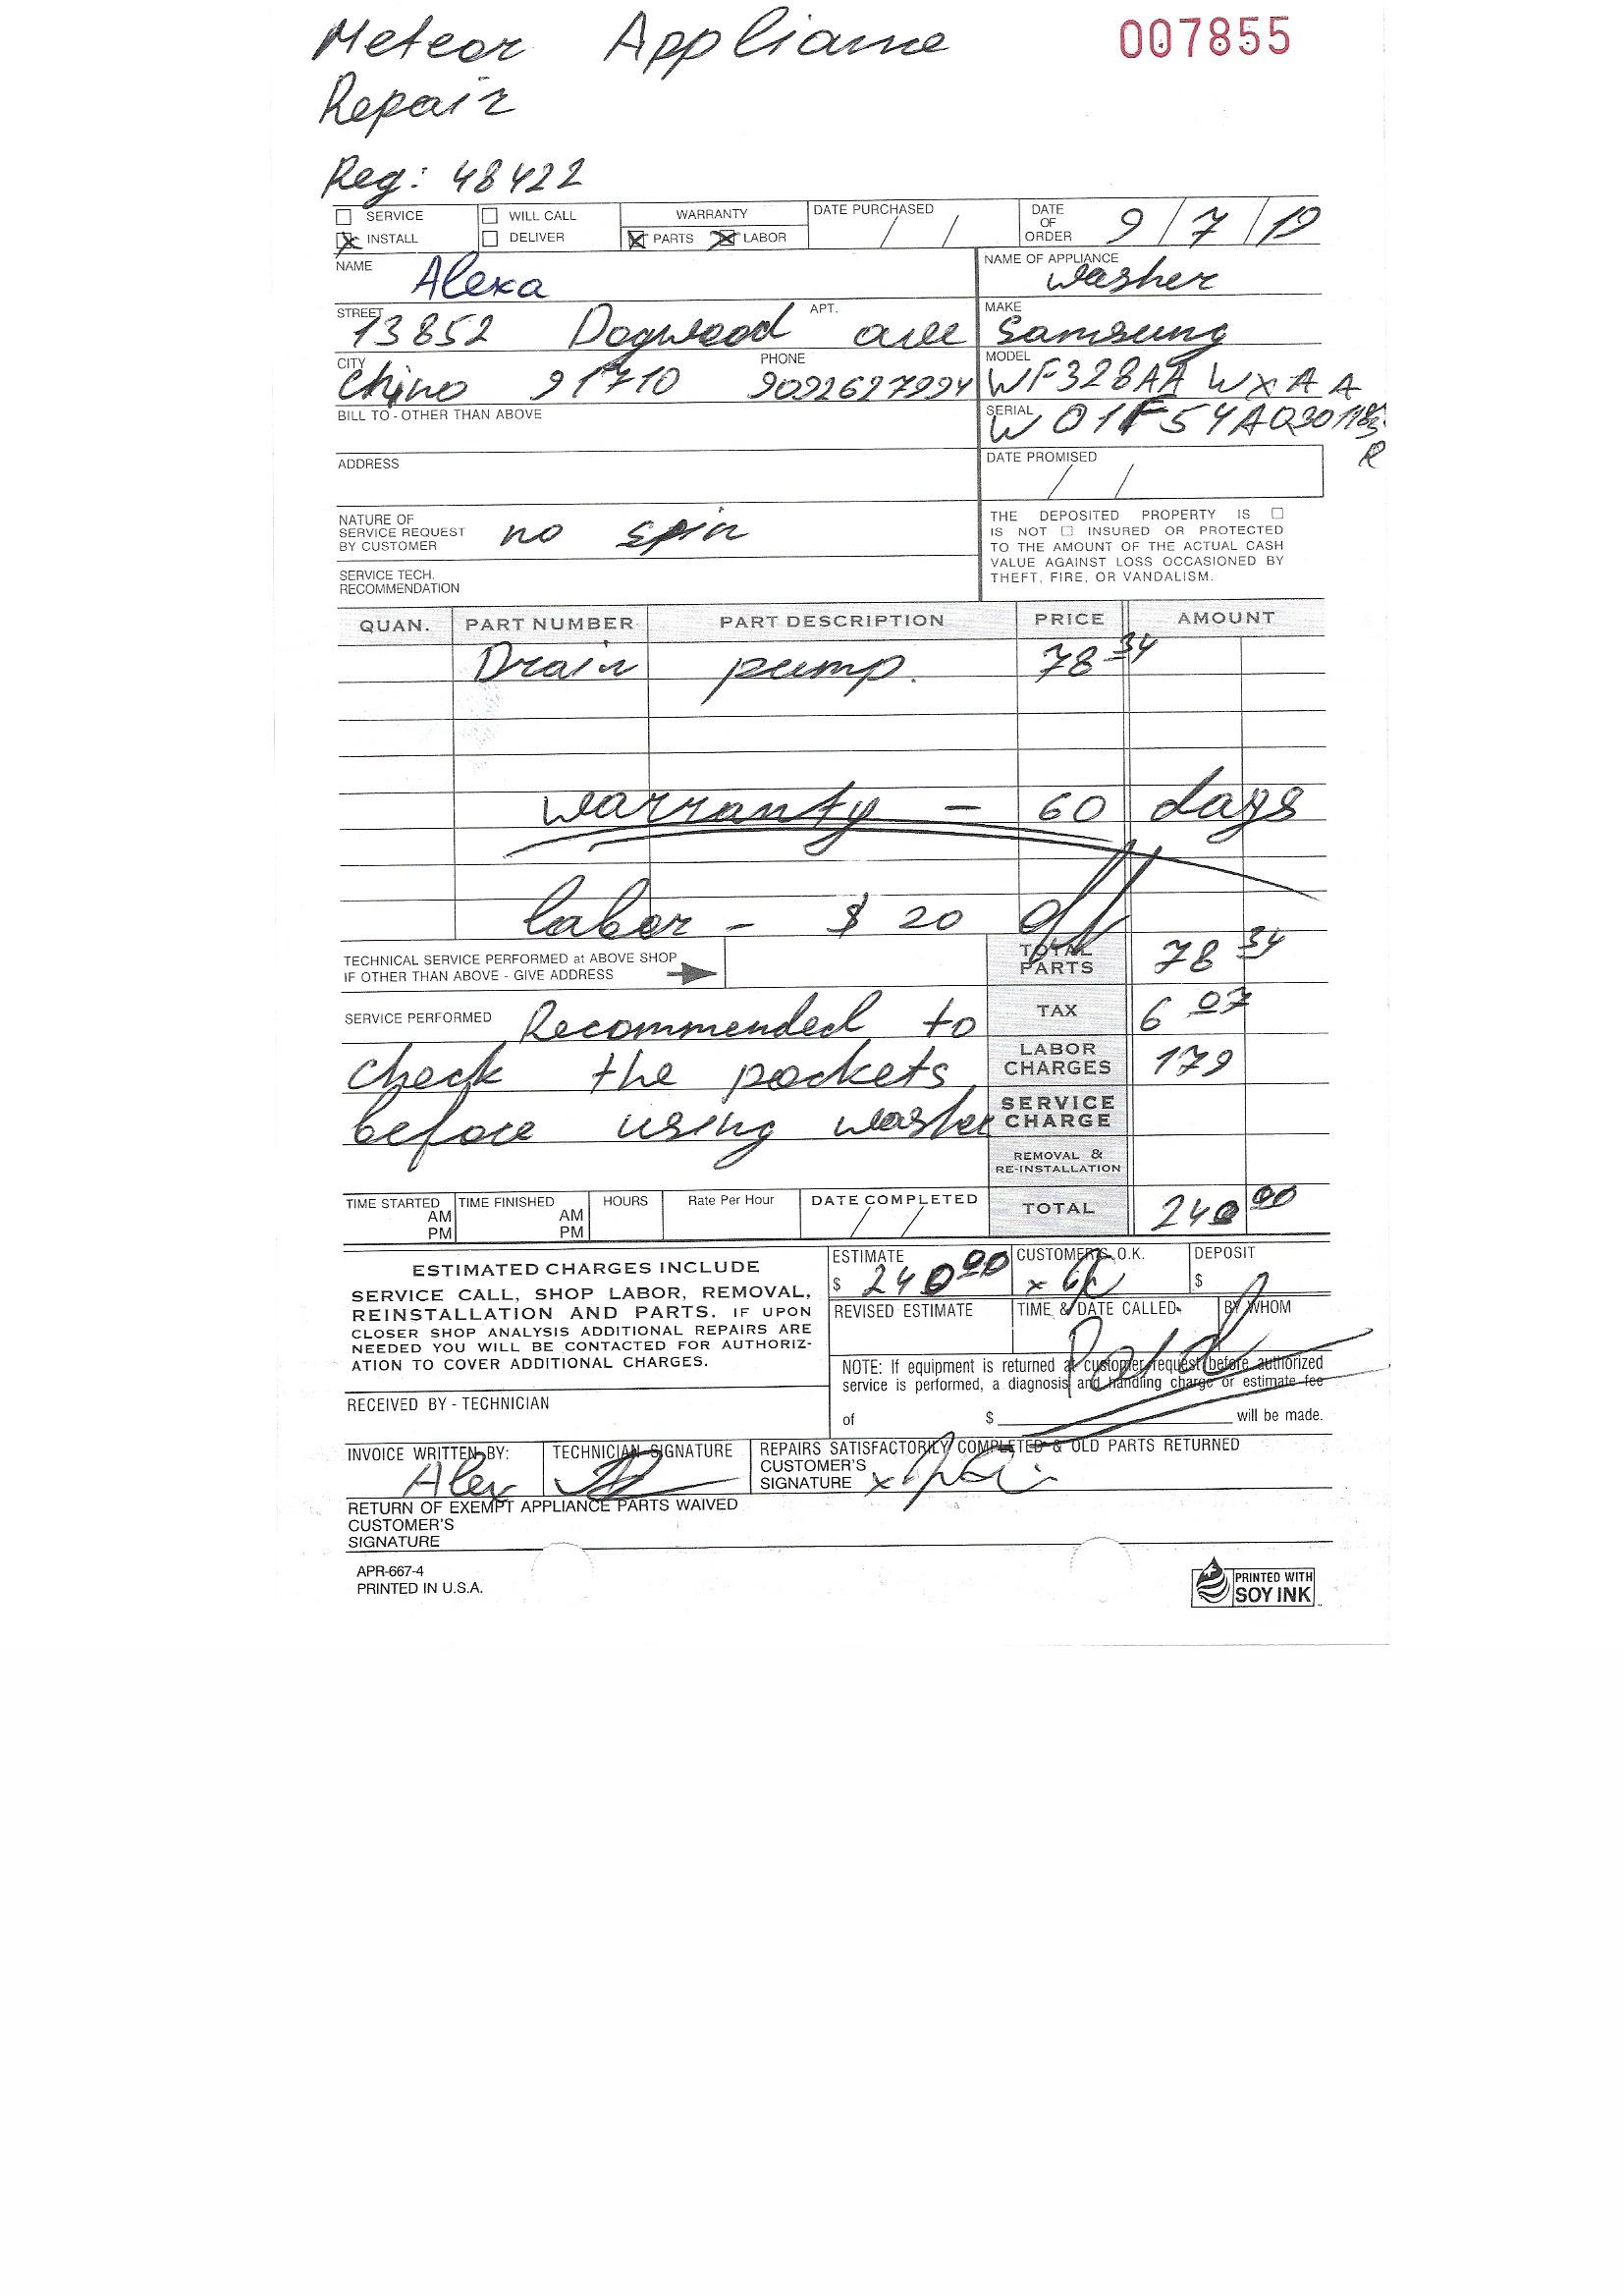 Meteor Appliance 007855
Repair
Reg: 48422
SERVICE WILL CALL WARRANTY DATE PURCHASED / / DATE OF ORDER 9/7/19
INSTALL DELIVER PARTS LABOR
NAME Alexa NAME OF APPLIANCE washer
STREET 13852 Dogwood APT. ave MAKE Samsung
CITY Chino 91710 PHONE 9092627994 MODEL WF328AA WXAA
BILL TO - OTHER THAN ABOVE SERIAL
ADDRESS DATE PROMISED / /
NATURE OF SERVICE REQUEST BY CUSTOMER no spin
THE DEPOSITED PROPERTY IS
IS NOT INSURED OR PROTECTED
TO THE AMOUNT OF THE ACTUAL CASH
VALUE AGAINST LOSS OCCASIONED BY
THEFT, FIRE, OR VANDALISM.
SERVICE TECH. RECOMMENDATION
QUAN. PART NUMBER PART DESCRIPTION PRICE AMOUNT
Drain pump. 78 34
warranty - 60 days
labor - $ 20 off
TECHNICAL SERVICE PERFORMED at ABOVE SHOP
IF OTHER THAN ABOVE - GIVE ADDRESS
TOTAL PARTS 78 34
SERVICE PERFORMED Recommended to
check the pockets
before using washer
TAX 6 07
LABOR CHARGES 179
SERVICE CHARGE
REMOVAL & RE-INSTALLATION
TIME STARTED AM PM TIME FINISHED AM PM HOURS Rate Per Hour DATE COMPLETED / / TOTAL 240 00
ESTIMATED CHARGES INCLUDE
SERVICE CALL, SHOP LABOR, REMOVAL,
REINSTALLATION AND PARTS. IF UPON
CLOSER SHOP ANALYSIS ADDITIONAL REPAIRS ARE
NEEDED YOU WILL BE CONTACTED FOR AUTHORIZ-
ATION TO COVER ADDITIONAL CHARGES.
ESTIMATE $ 240 00 CUSTOMER'S O.K. x DEPOSIT $
REVISED ESTIMATE TIME & DATE CALLED BY WHOM
Paid
NOTE: If equipment is returned at customer request before authorized
service is performed, a diagnosis and handling charge or estimate fee
of $ will be made.
RECEIVED BY - TECHNICIAN
INVOICE WRITTEN BY: Alex TECHNICIAN SIGNATURE
REPAIRS SATISFACTORILY COMPLETED & OLD PARTS RETURNED
CUSTOMER'S SIGNATURE x
RETURN OF EXEMPT APPLIANCE PARTS WAIVED
CUSTOMER'S
SIGNATURE
APR-667-4
PRINTED IN U.S.A.
PRINTED WITH
SOY INK